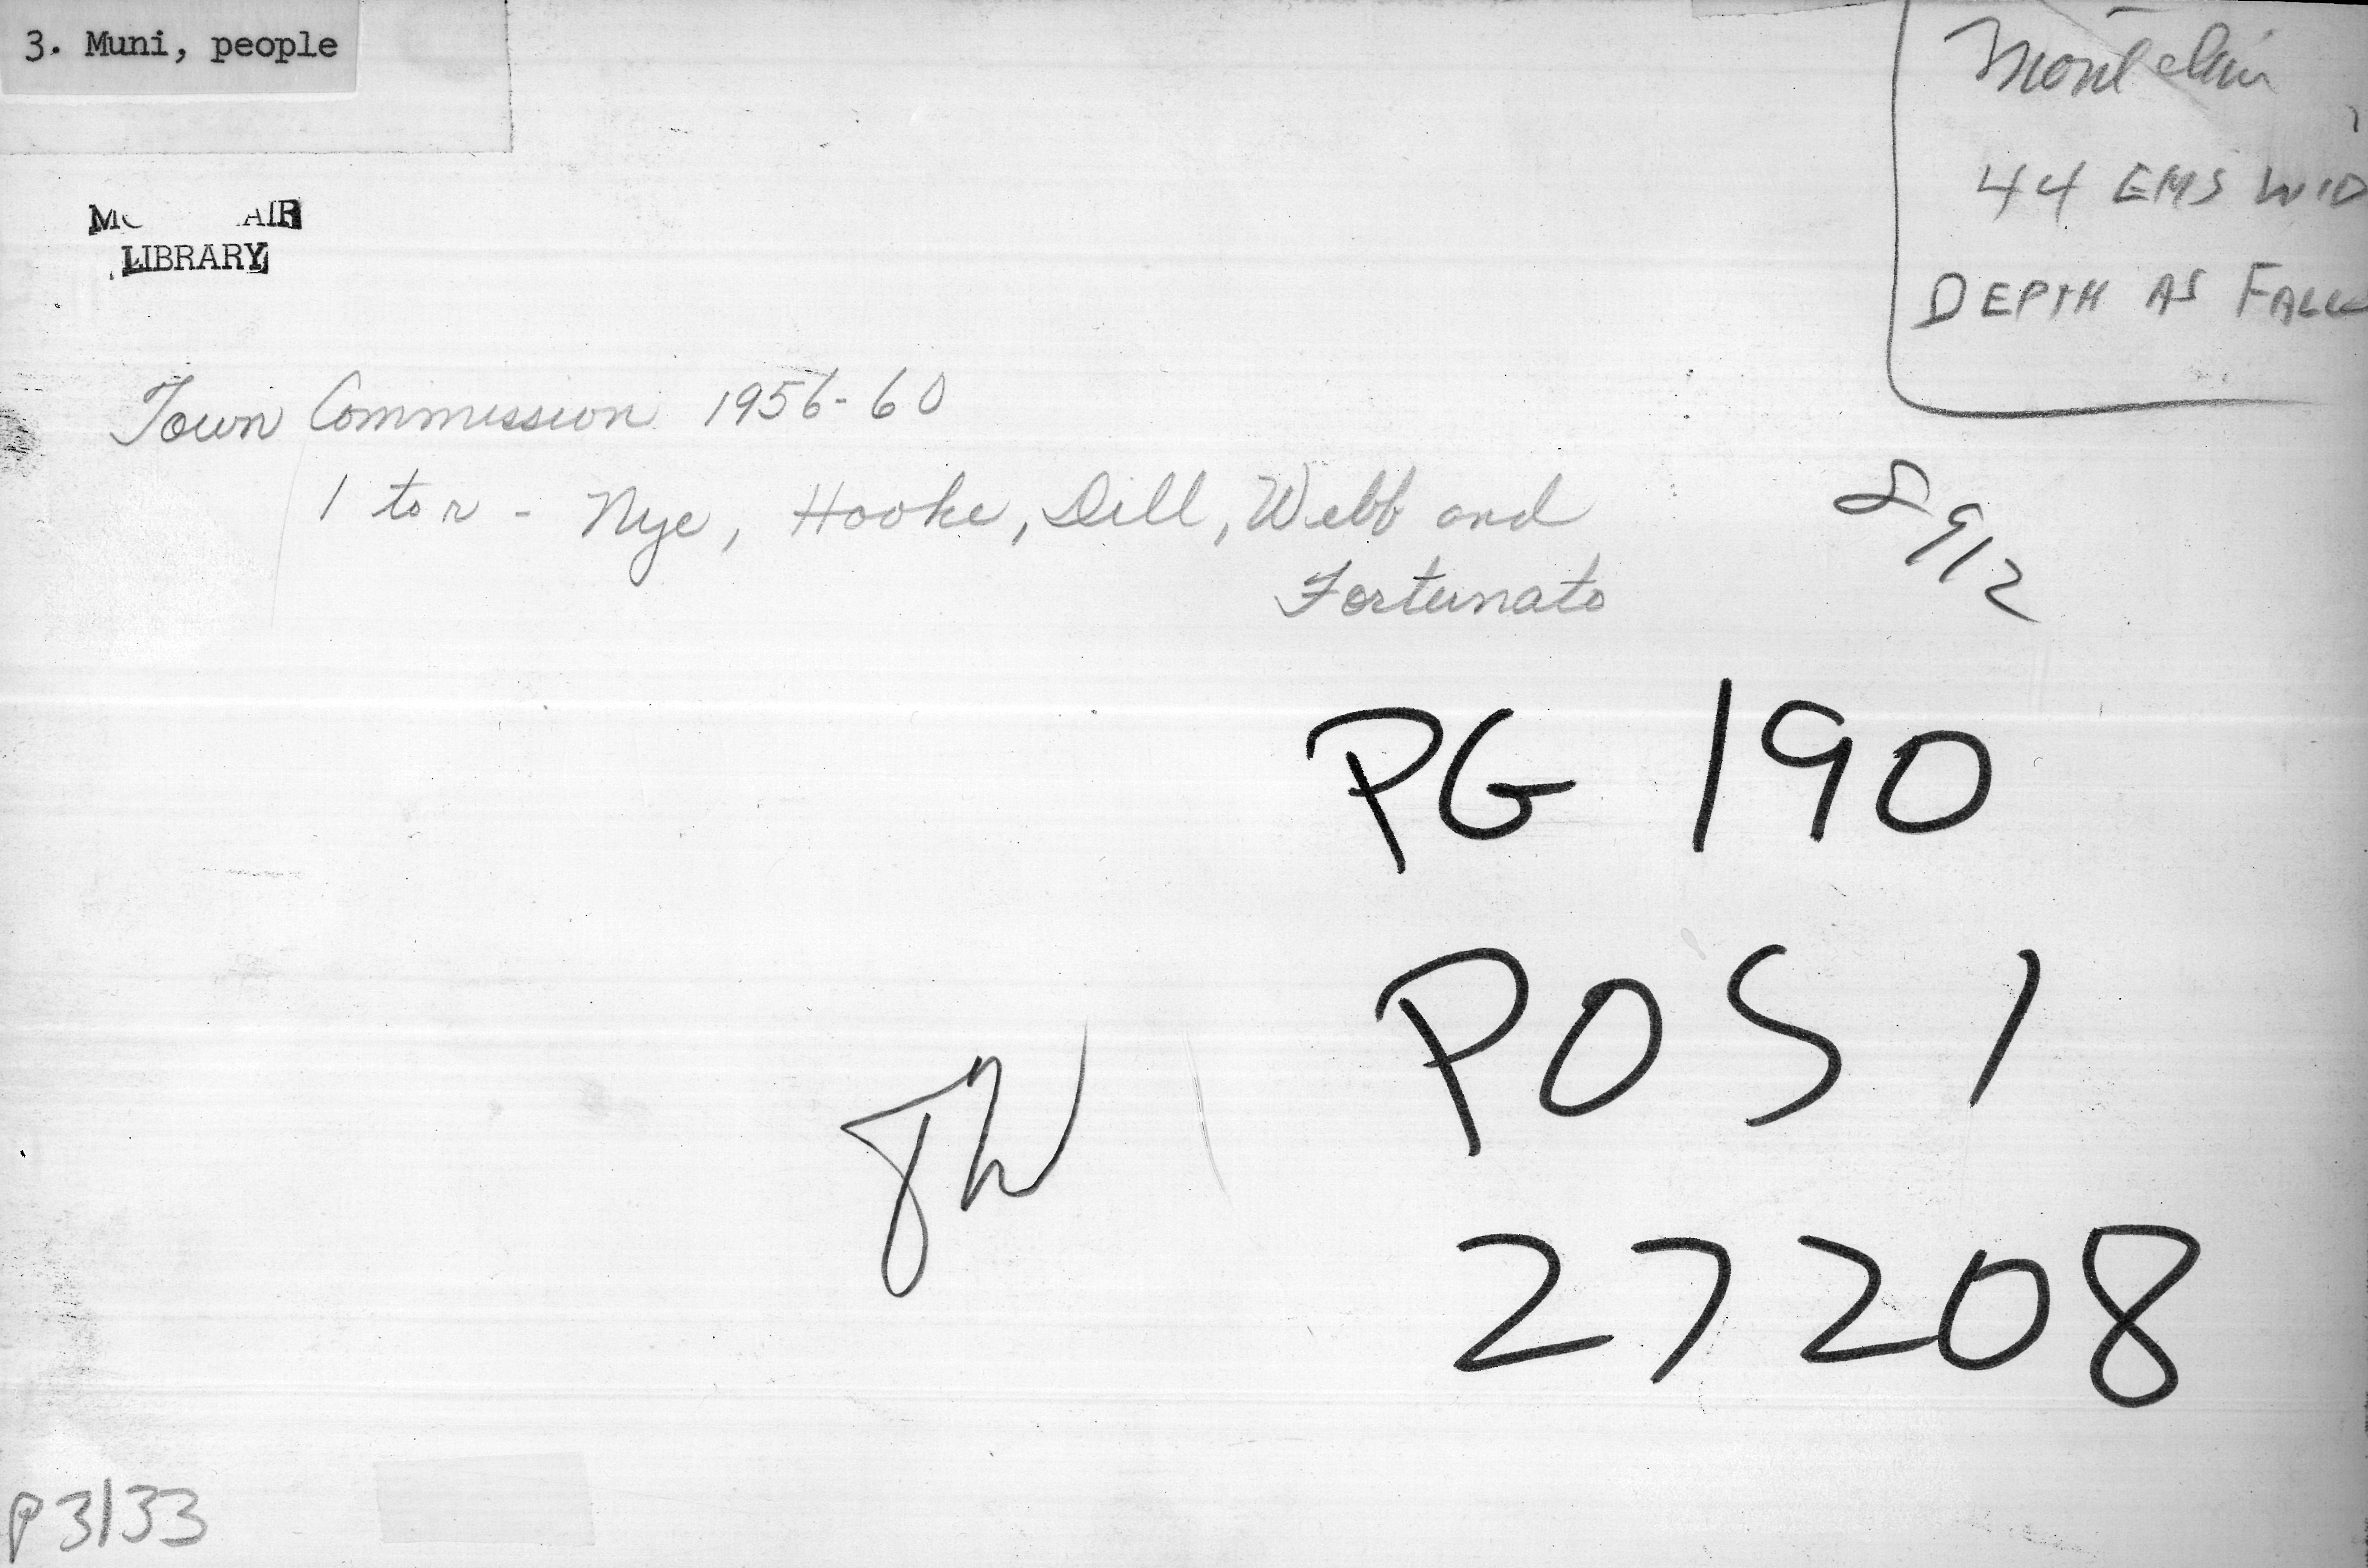 3. Muni, people
Montclair
44 EMS WID
DEPTH AS FALLS
M AIR
LIBRARY
Town Commission 1956-60
l to r - Nye, Hooke, Dill, Webb and
Fortunato
8912
PG 190
POS 1
27208
P3133